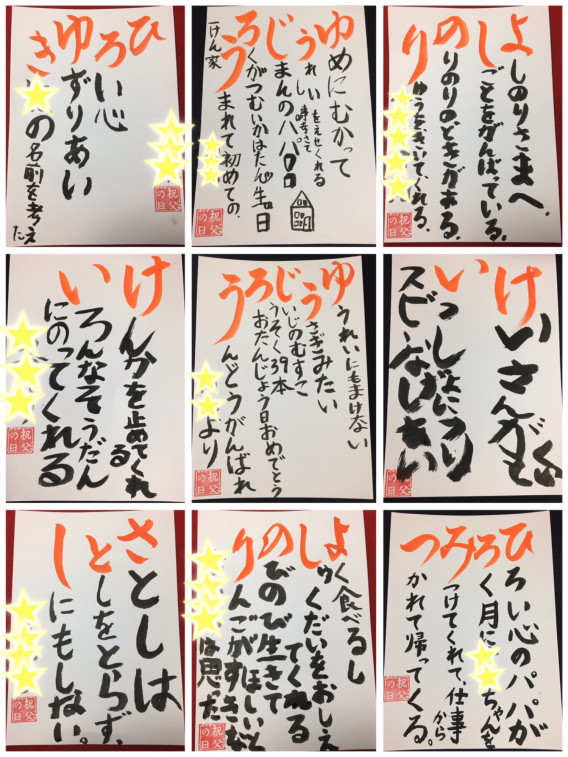 ひろい心
ゆずりあい
きの名前を考えた
祝父の日
ゆめにむかって
うれしい
じまんのパパ
ろくがつむいかはたん生日
うまれて初めての、
一けん家
よしのりさまへ。
しごとをがんばっている。
のりのりのときがある。
りゆうをきいてくれる。
祝父の日
けんかを止めてくれる
いろんなそうだん
にのってくれる
祝父の日
ゆうれいにもまけない
うさぎみたい
じいじのむすこ
ろうそく39本
おたんじょう日おめでとう
うんどうがんばれ
より
祝父の日
けいさんがとくい
いっしょにつり
祝父の日
さとしは
としをとらず、
しにもしない。
祝父の日
よく食べるし
しゅくだいをおしえてくれる
のびのび生きてほしいと
りんごがすきな
は思った
祝父の日
ひろい心のパパが
ろく月にちゃんを
みつけてくれて、仕事から
つかれて帰ってくる。
祝父の日